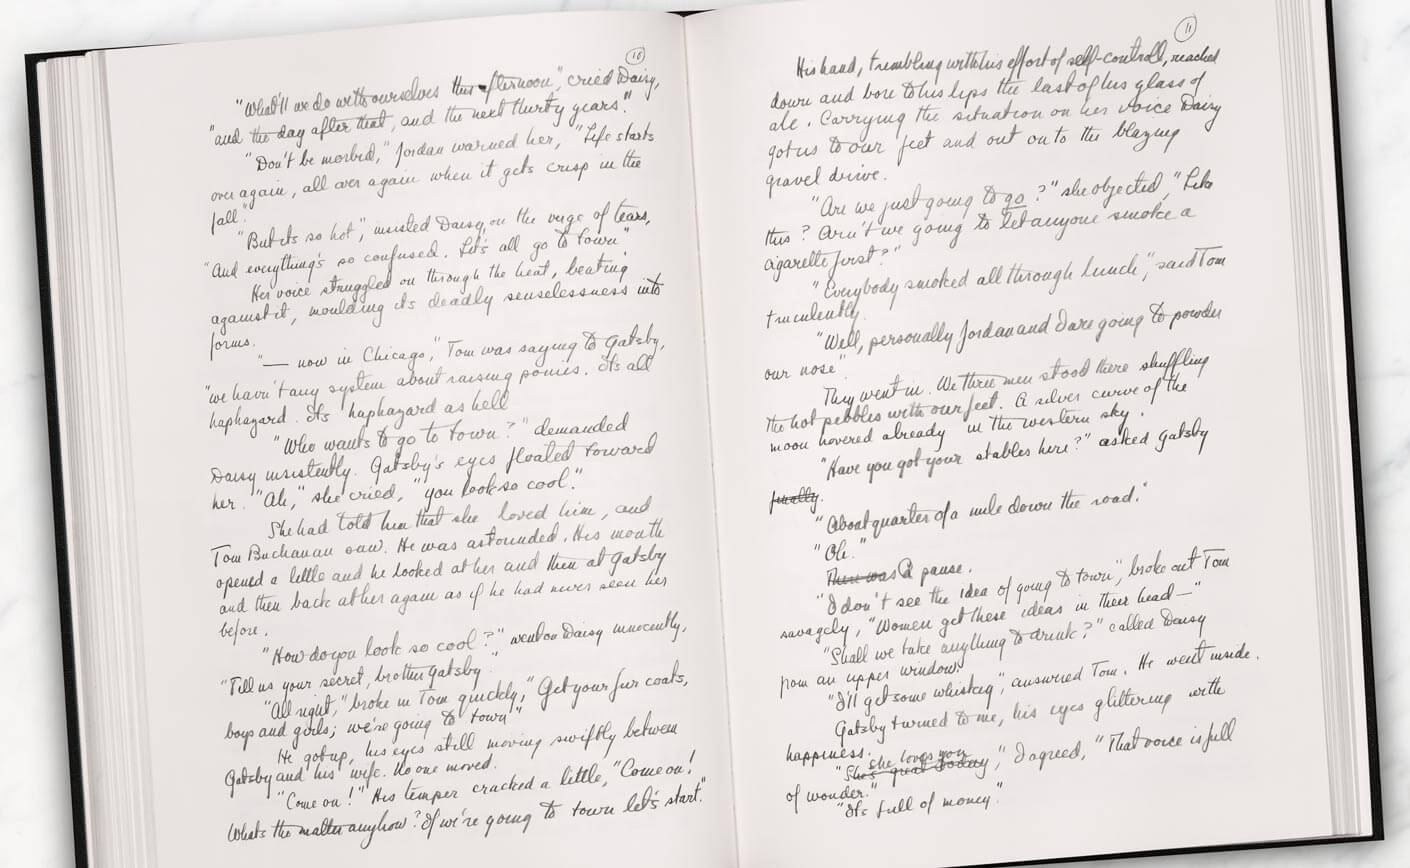 10
"What'll we do with ourselves this afternoon", cried Daisy,
"and the day after that, and the next thirty years."
"Don't be morbid," Jordan warned her, "Life starts
over again, all over again when it gets crisp in the
fall".
"But its so hot", insisted Daisy, on the verge of tears,
"And everything's so confused. Let's all go to town"
Her voice struggled on through the heat, beating
against it, moulding its deadly senselessness into
forms.
"— now in Chicago," Tom was saying to Gatsby,
"we havn't any system about raising ponies. Its all
haphazard. Its haphazard as hell
"Who wants to go to town?" demanded
Daisy insistently. Gatsby's eyes floated toward
her. "Ah," she cried, "you look so cool."
She had told him that she loved him, and
Tom Buchanan saw. He was astounded. His mouth
opened a little and he looked at her and then at Gatsby
and then back at her again as if he had never seen her
before.
"How do you look so cool?" went on Daisy innocently,
"Tell us your secret, brother Gatsby".
"All right," broke in Tom quickly, "Get your fur coats,
boys and girls; we're going to town"
He got up, his eyes still moving swiftly between
Gatsby and his wife. No one moved.
"Come on!" His temper cracked a little, "Come on!
Whats the matter anyhow? If we're going to town let's start."
11
His hand, trembling with his effort of self-controll, reached
down and bore to his lips the last of his glass of
ale. Carrying the situation on her voice Daisy
got us to our feet and out onto the blazing
gravel drive.
"Are we just going to go?" she objected, "Like
this? Arn't we going to let anyone smoke a
cigarette first?"
"Everybody smoked all through lunch", said Tom
truculently.
"Well, personally Jordan and I are going to powder
our nose".
They went in. We three men stood there shuffling
the hot pebbles with our feet. A silver curve of the
moon hovered already in the western sky.
"Have you got your stables here?" asked Gatsby
finally.
"About quarter of a mile down the road."
"Oh."
There was A pause.
"I don't see the idea of going to town", broke out Tom
savagely, "Women get these ideas in their head—"
"Shall we take anything to drink?" called Daisy
from an upper window.
"I'll get some whiskey", answered Tom. He went inside.
Gatsby turned to me, his eyes glittering with
happiness.
she loves you
"She's great today", I agreed, "That voice is full
of wonder."
"Its full of money".